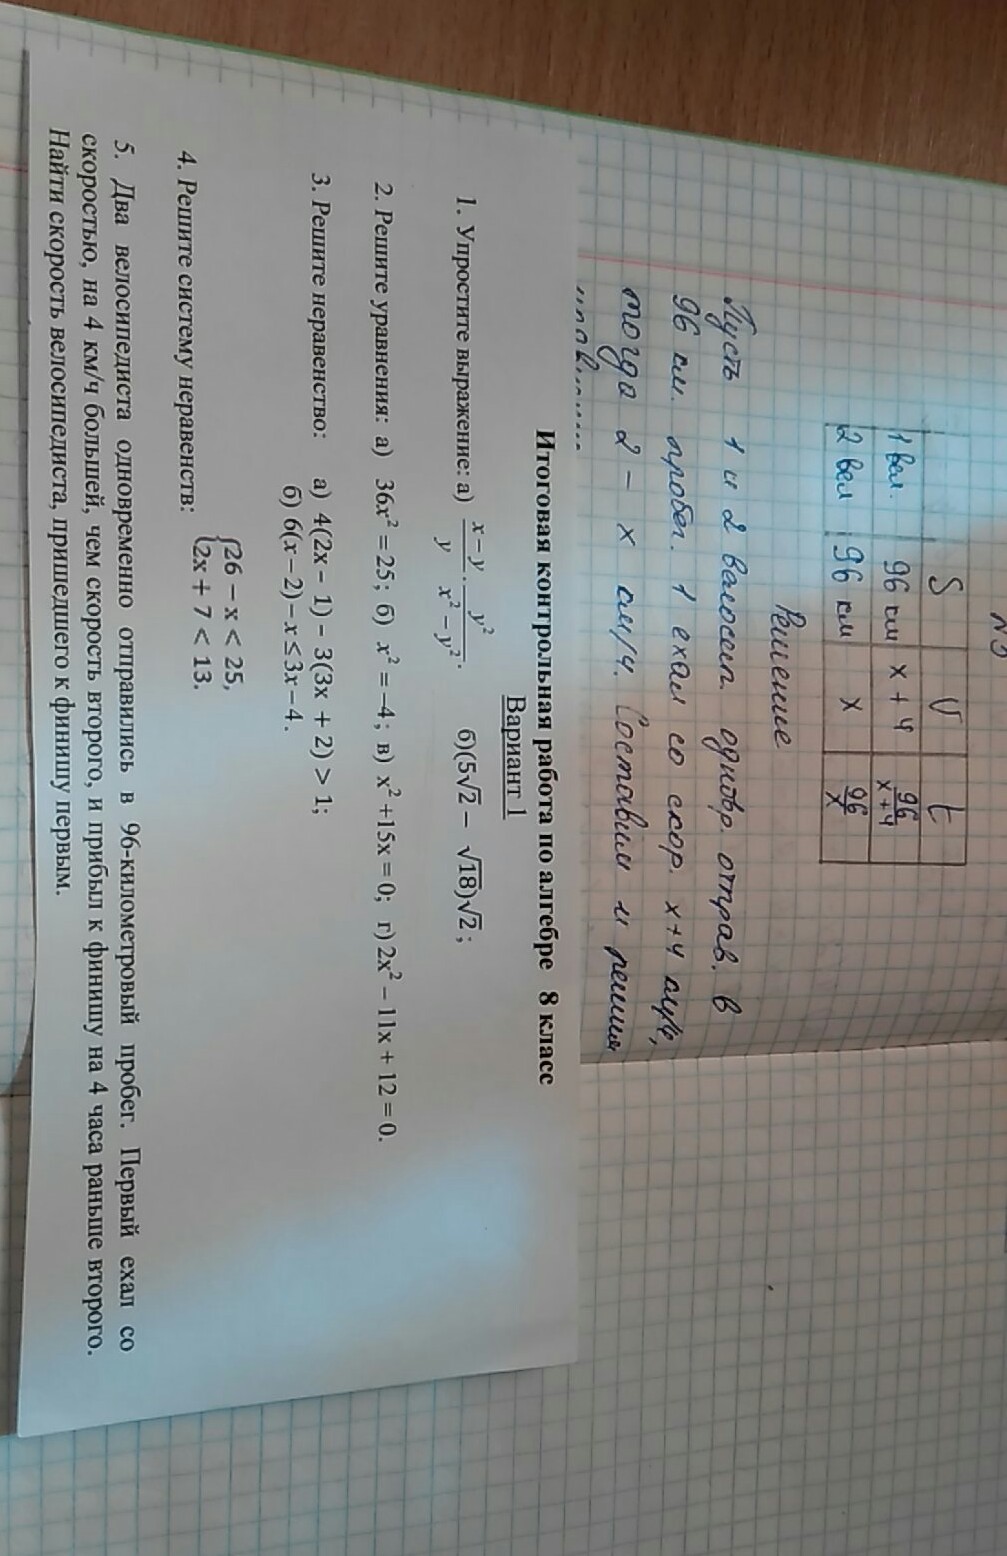 N5
S V t
1 вел. 96 км x + 4 96/(x+4)
2 вел 96 км x 96/x
Решение
Пусть 1 и 2 велосип. одновр. отправ. в
96 км. пробег. 1 ехал со скор. x+4 км/ч,
тогда 2 – x км/ч. Составим и решим
Итоговая контрольная работа по алгебре 8 класс
Вариант 1
1. Упростите выражение: а) (x − y)/y · y²/(x² − y²). б)(5√2 − √18)√2 ;
2. Решите уравнения: а) 36x² = 25; б) x² = −4; в) x² +15x = 0; г) 2x² − 11x + 12 = 0.
3. Решите неравенство: а) 4(2x − 1) − 3(3x + 2) > 1;
б) 6(x − 2) − x ≤ 3x − 4.
4. Решите систему неравенств: {26 − x < 25,
2x + 7 < 13.
5. Два велосипедиста одновременно отправились в 96-километровый пробег. Первый ехал со
скоростью, на 4 км/ч большей, чем скорость второго, и прибыл к финишу на 4 часа раньше второго.
Найти скорость велосипедиста, пришедшего к финишу первым.